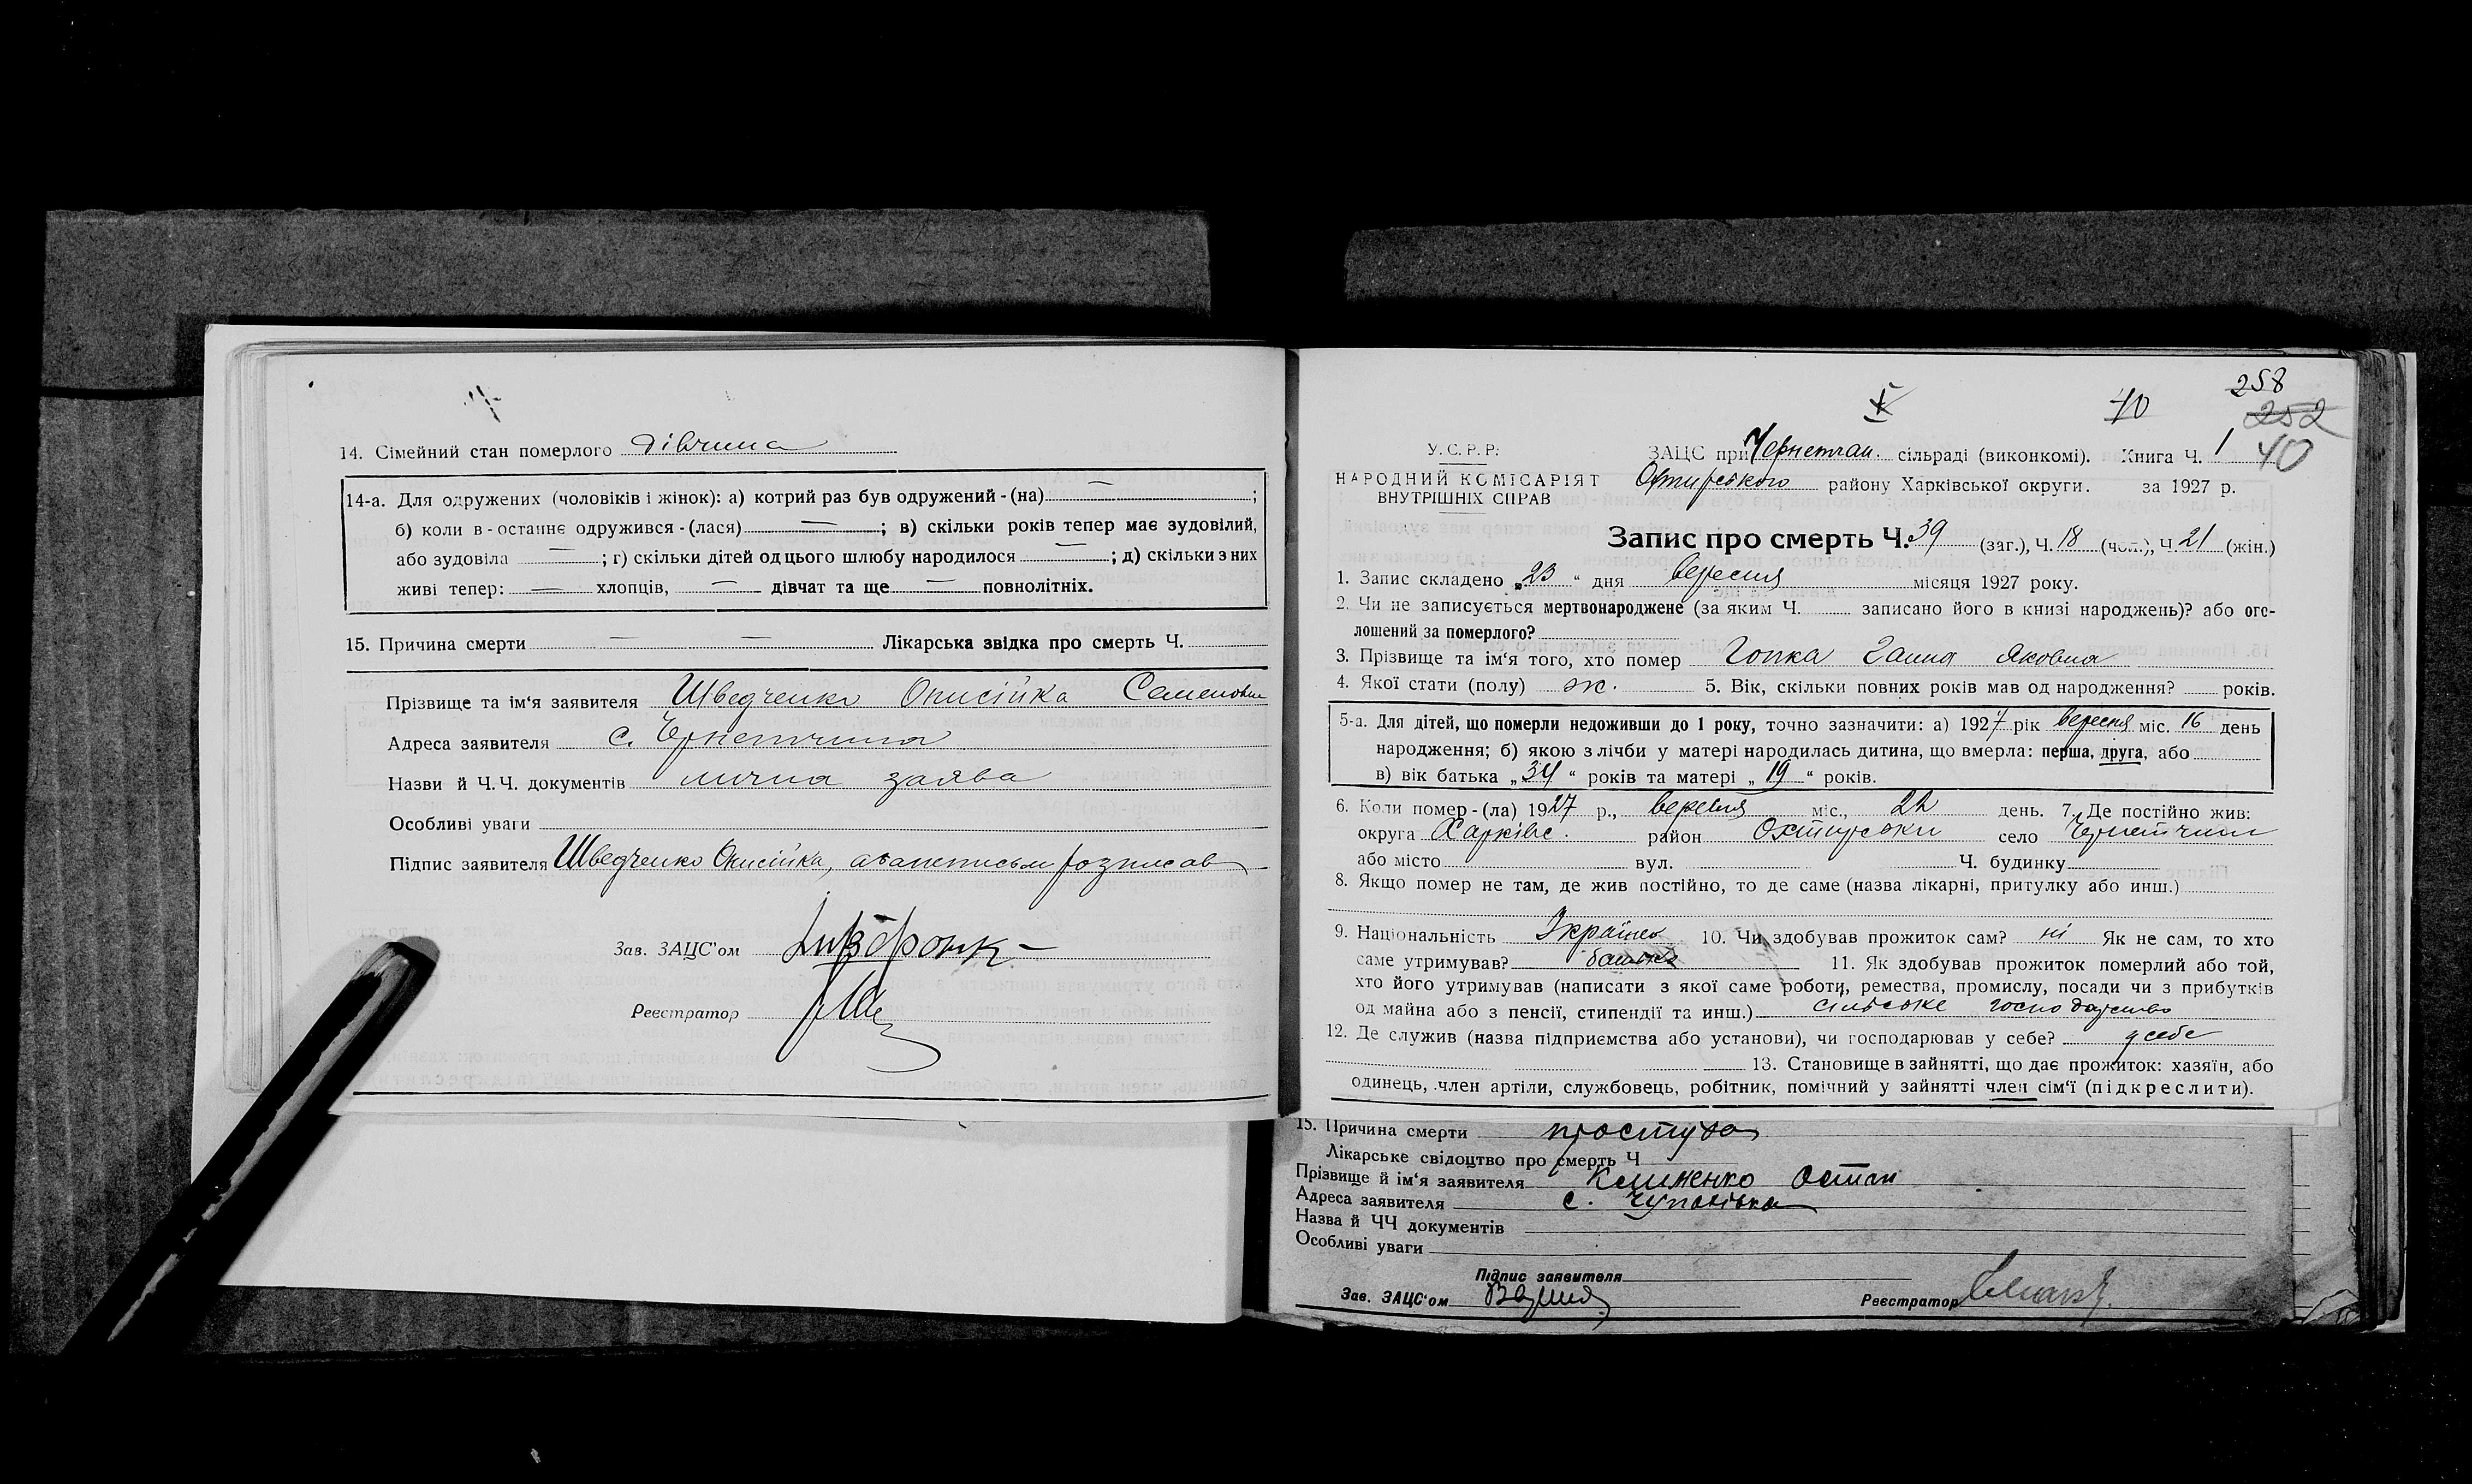 14. Сімейний стан померлого дівчина
14-а. Для одружених (чоловіків і жінок): а) котрий раз був одружений - (на) — ;
б) коли в-останнє одружився - (лася) — ; в) скільки років тепер має зудовілий,
або зудовіла — ; г) скільки дітей од цього шлюбу народилося — ; д) скільки з них
живі тепер: — хлопців, — дівчат та ще — повнолітніх.
15. Причина смерти — — Лікарська звідка про смерть Ч.
Прізвище та ім'я заявителя Шведченко Онисійка Семенович
Адреса заявителя с. Чернетчина
Назви й Ч.Ч. документів лична заява
Особливі уваги
Підпис заявителя Шведченко Онисійка, розписав
Зав. ЗАЦС'ом
Реєстратор
258
252
40
10
У.С.Р.Р.
НАРОДНИЙ КОМІСАРІЯТ
ВНУТРІШНІХ СПРАВ
ЗАЦС при Чернетчан. сільраді (виконкомі). Книга Ч. 1
Охтирського району Харківської округи. за 1927 р.
Запис про смерть Ч. 39 (заг.), Ч. 18 (чол.), Ч. 21 (жін.)
1. Запис складено „23" дня вересня місяця 1927 року.
2. Чи не записується мертвонароджене (за яким Ч. записано його в книзі народжень)? або ого-
лошений за померлого?
3. Прізвище та ім'я того, хто помер Гопка Ганна Яковна
4. Якої стати (полу) ж. 5. Вік, скільки повних років мав од народження? років.
5-а. Для дітей, що померли недоживши до 1 року, точно зазначити: а) 1927 рік вересня міс. 16 день
народження; б) якою з лічби у матері народилась дитина, що вмерла: перша, друга, або
в) вік батька „34" років та матері „19" років.
6. Коли помер - (ла) 1927 р., вересня міс., 22 день. 7. Де постійно жив:
округа Харківс. район Охтирськи село Чернетчин
або місто вул. Ч. будинку
8. Якщо помер не там, де жив постійно, то де саме (назва лікарні, притулку або инш.)
9. Національність Україн 10. Чи здобував прожиток сам? ні Як не сам, то хто
саме утримував? батько 11. Як здобував прожиток померлий або той,
хто його утримував (написати з якої саме роботи, ремества, промислу, посади чи з прибутків
од майна або з пенсії, стипендії та инш.) сільське господарство
12. Де служив (назва підприємства або установи), чи господарював у себе? у себе
13. Становище в зайнятті, що дає прожиток: хазяїн, або
одинець, член артілі, службовець, робітник, помічний у зайнятті член сім'ї (підкреслити).
15. Причина смерти простуда
Лікарське свідоцтво про смерть Ч
Прізвище й ім'я заявителя Клименко Остап
Адреса заявителя с. Чупахівка
Назва й ЧЧ документів
Особливі уваги
Підпис заявителя
Зав. ЗАЦС'ом
Реєстратор